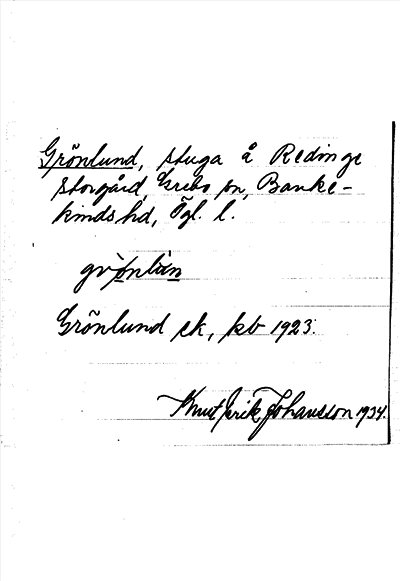 Grönlund, stuga å Redinge
storgård, Grebo sn, Banke-
kinds hd, Ögl. l.
Grönlund sk, kb 1923.
Knut Erik Johansson 1934.